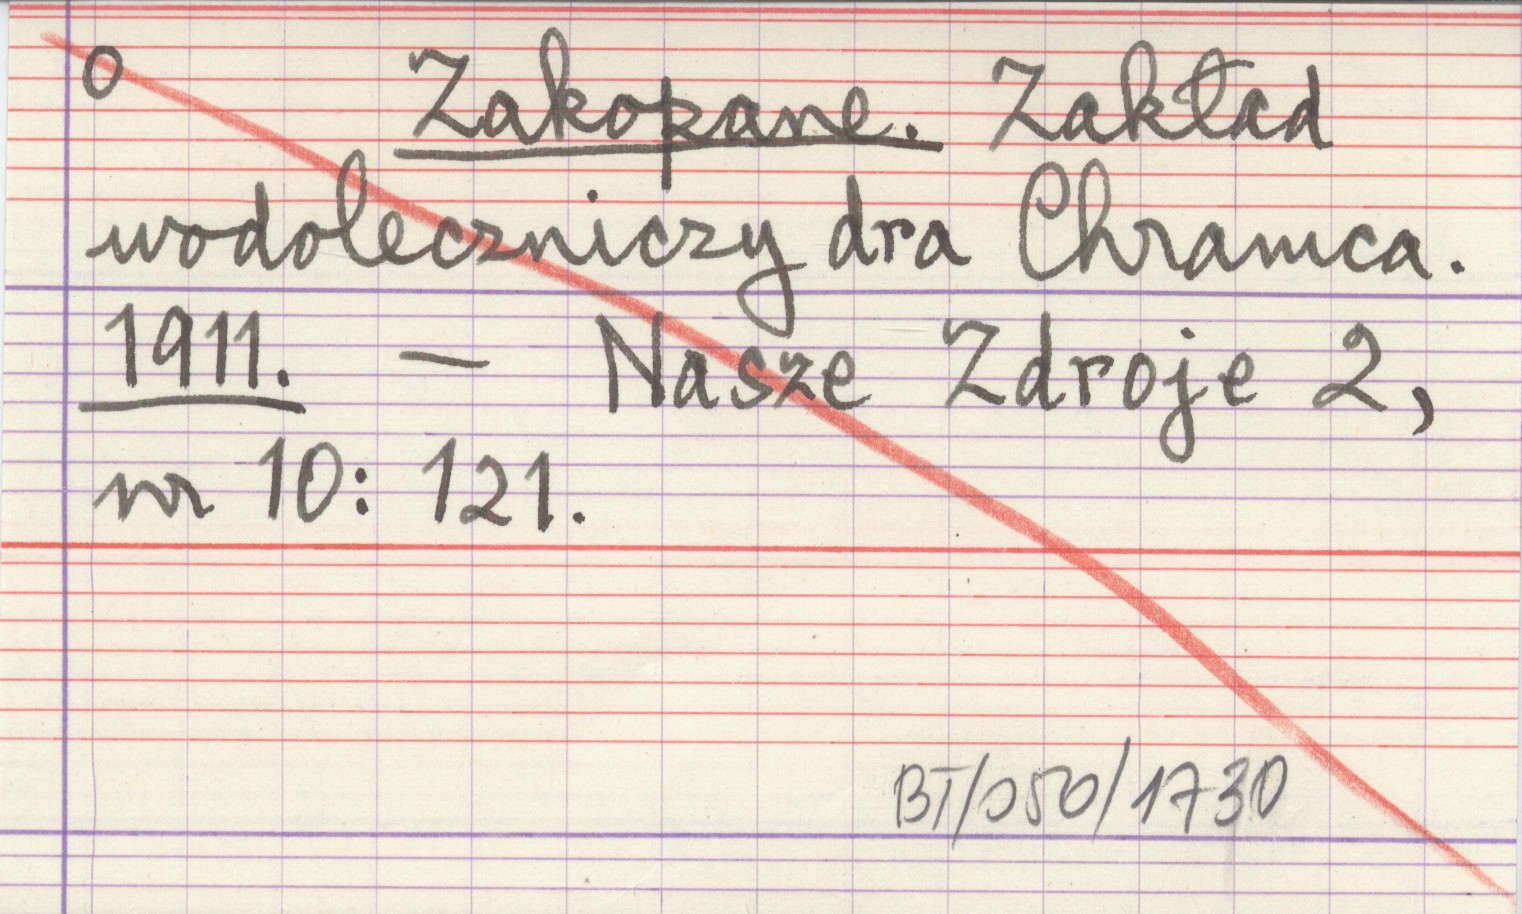 0 Zakopane. Zakład
wodoleczniczy dra Chramca.
1911. — Nasze Zdroje 2,
nr 10: 121.
BT/050/1730